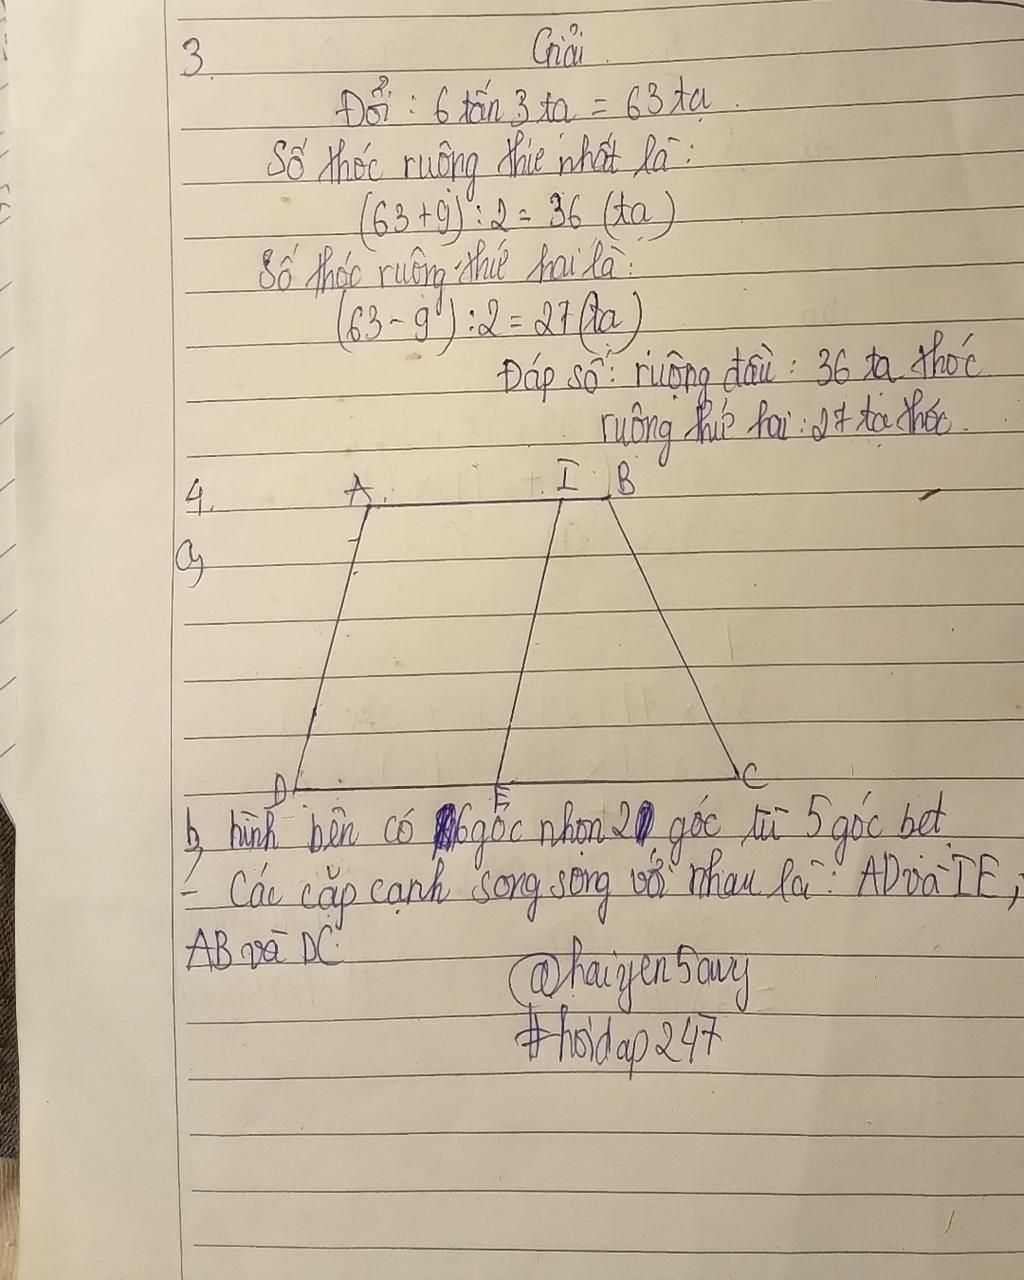 3. Giải
Đổi : 6 tấn 3 tạ = 63 tạ .
Số thóc ruộng thứ nhất là :
(63+9) : 2 = 36 (tạ)
Số thóc ruộng thứ hai là :
(63-9) : 2 = 27 (tạ)
Đáp số : ruộng đầu : 36 tạ thóc
ruộng thứ hai : 27 tạ thóc.
4. A I B
a,
D E C
b, hình bên có 6 góc nhọn 2 góc tù 5 góc bẹt
- Các cặp cạnh song song với nhau là : AD và IE,
AB và DC
@haiyen5auy
#hoidap247